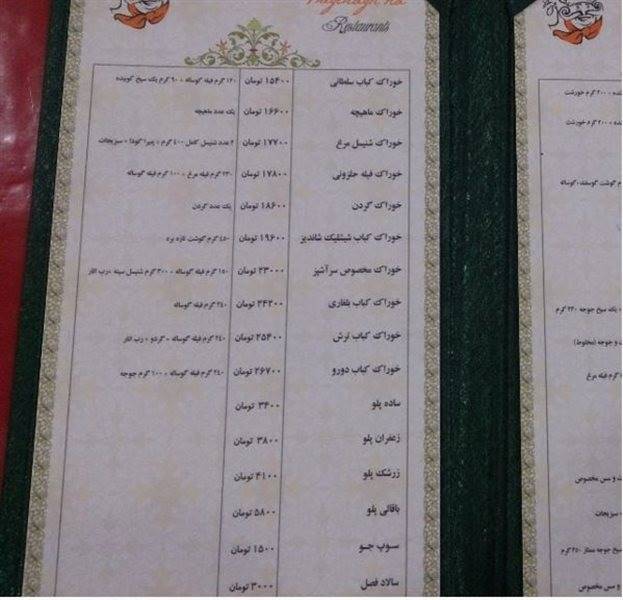 Restaurants
خوراک کباب سلطانی ۱۵۴۰۰ تومان ۱۲۰ گرم فیله گوساله + ۹۰ گرم یک سیخ کوبیده
خوراک ماهیچه ۱۶۶۰۰ تومان یک عدد ماهیچه
خوراک شنیسل مرغ ۱۷۷۰۰ تومان ۲ عدد شنیسل کامل ۴۰۰ گرم + پنیر گودا + سبزیجات
خوراک فیله حلزونی ۱۷۸۰۰ تومان ۲۳۰ گرم فیله مرغ + ۱۰۰ گرم فیله گوساله
خوراک گردن ۱۸۶۰۰ تومان یک عدد گردن
خوراک کباب شیشلیک شاندیز ۱۹۶۰۰ تومان ۴۵۰ گرم گوشت تازه بره
خوراک مخصوص سرآشپز ۲۳۰۰۰ تومان ۱۵۰ گرم فیله گوساله + ۲۰۰ گرم شنیسل سینه +رب انار
خوراک کباب بلغاری ۲۴۲۰۰ تومان ۲۴۰ گرم فیله گوساله
خوراک کباب ترش ۲۵۴۰۰ تومان ۲۴۰ گرم فیله گوساله + گردو + رب انار
خوراک کباب دورو ۲۶۷۰۰ تومان ۲۴۰ گرم فیله گوساله + ۱۰۰ گرم جوجه
ساده پلو ۳۴۰۰ تومان
زعفران پلو ۳۸۰۰ تومان
زرشک پلو ۴۱۰۰ تومان
باقالی پلو ۵۸۰۰ تومان
سوپ جو ۱۵۰۰ تومان
سالاد فصل ۳۰۰۰ تومان
۲۰۰ گرم خورشت
۲۰۰ گرم خورشت
گرم گوشت گوسفند،گوساله
یک سیخ جوجه ۲۲۰ گرم
و جوجه (مخلوط)
گرم فیله مرغ
و سس مخصوص
سبزیجات
سیخ جوجه ممتاز ۲۵۰ گرم
و سس مخصوص